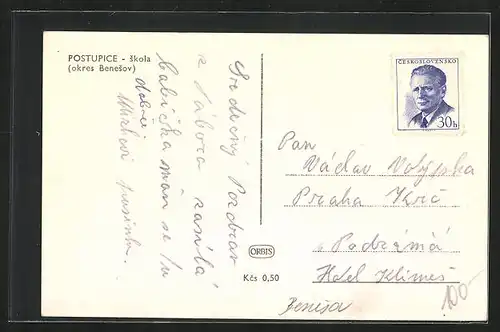 POSTUPICE - škola
(okres Benešov)
Srdečný Pozdrav
z Tábora zasílá
babička mám se tu
dobře
ČESKOSLOVENSKO
30h
Pan
Václav
Praha Krč
Podrzámá
Hotel Klimeš
Beneša
ORBIS
Kčs 0,50
100